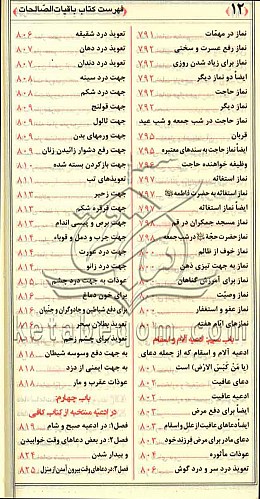 ﴿۱۲﴾
فهرست کتاب باقیات الصالحات
نماز در مهمّات ۷۹۱
نماز رفع عسرت و سختی ۷۹۲
نماز برای زیاد شدن روزی ۷۹۲
ایضاً دو نماز دیگر ۷۹۲
نماز حاجت ۷۹۲
نماز دیگر ۷۹۲
نماز حاجت در شب جمعه و شب عید
قربان ۷۹۵
ایضاً نماز حاجت به سندهای معتبره ۷۹۵
وظیفه خواهنده حاجت ۷۹۶
نماز استغاثه ۷۹۷
نماز استغاثه به حضرت فاطمه ۷۹۷
ایضاً نماز استغاثه ۷۹۷
نماز مسجد جمکران در قم ۷۹۸
نماز حضرت حجّة در شب جمعه ۷۹۸
نماز خوف از ظالم ۸۰۰
نماز به جهت تیزی ذهن ۸۰۰
نماز برای آمرزش گناهان ۸۰۰
نماز وصیّت
نماز عفو و استغفار ۸۰۰
نمازهای ایّام هفته
ادعیه آلام و اسقام
ادعیه آلام و اسقام که از جمله دعای
(یا مَنْ کَبَسَ الأرضَ) است ۸۰۱
دعای عافیت ۸۰۲
ادعیه عافیت ۸۰۲
ایضاً برای دفع مرض ۸۰۳
ایضاً دعاهای عافیت از علل و اسقام ۸۰۳
دعای مادر برای مرض فرزند خود ۸۰۳
عوذات مأثوره
تعویذ درد سر و درد گوش ۸۰۶
تعویذ درد شقیقه ۸۰۶
تعویذ درد دهان ۸۰۷
تعویذ درد دندان ۸۰۷
جهت درد سینه ۸۰۸
جهت درد شکم ۸۰۸
جهت قولنج ۸۰۹
جهت ثالول ۸۰۹
جهت ورمهای بدن ۸۰۹
جهت رفع دشوار زائیدن زنان ۸۰۹
جهت بازکردن بسته شده ۸۱۰
تعویذهای تب ۸۱۱
جهت زحیر ۸۱۳
جهت قرقره شکم ۸۱۳
جهت برص و پیسی اندام ۸۱۳
جهت جرب و دمل و قوباء ۸۱۴
جهت درد عورت ۸۱۴
جهت درد زانو ۸۱۴
عوذات به جهت درد چشم ۸۱۵
برای خون دماغ ۸۱۶
برای دفع شیاطین و جادوگران و جنّیان
تعویذ بطلان سحر
تعویذ برای چشم زخم
به جهت دفع وسوسه شیطان ۸۱۸
به جهت ایمنی از دزد ۸۱۸
عوذات عقرب و مار ۸۱۸
باب چهارم:
در ادعیه منتخبه از کتاب کافی
فصل ۱: در ادعیه صبح و شام ۸۱۹
فصل ۲: در بعض دعاهای وقت خوابیدن
و بیدار شدن ۸۲۴